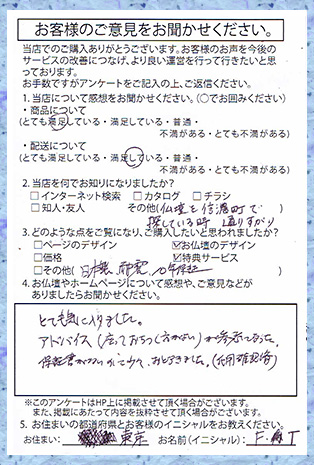 お客様のご意見をお聞かせください。
当店でのご購入ありがとうございます。お客様のお声を今後の
サービスの改善につなげ、より良い運営を行って行きたいと思
っております。
お手数ですがアンケートをご記入の上、ご返信ください。
1. 当店について感想をお聞かせください。(〇でお囲みください)
・商品について
(とても満足している・満足している・普通・
不満がある・とても不満がある)
・配送について
(とても満足している・満足している・普通・
不満がある・とても不満がある)
2. 当店を何でお知りになりましたか?
□インターネット検索 □カタログ □チラシ
□知人・友人 その他(仏壇を信濃町で
探している時 通りすがり)
3. どのような点をご覧になり、ご購入したいと思われましたか?
□ページのデザイン ☑お仏壇のデザイン
□価格 ☑特典サービス
□その他(日本製、 10年保証)
4. お仏壇やホームページについて感想や、ご意見などが
ありましたらお聞かせください。
とても気に入りました。
アドバイス( )が参考になった。
保証書が
※このアンケートはHP上に掲載させて頂く場合がございます。
また、掲載にあたって内容を抜粋させて頂く場合がございます。
5. お住まいの都道府県とお客様のイニシャルをお教えください。
お住まい: 東京 お名前(イニシャル): F. T